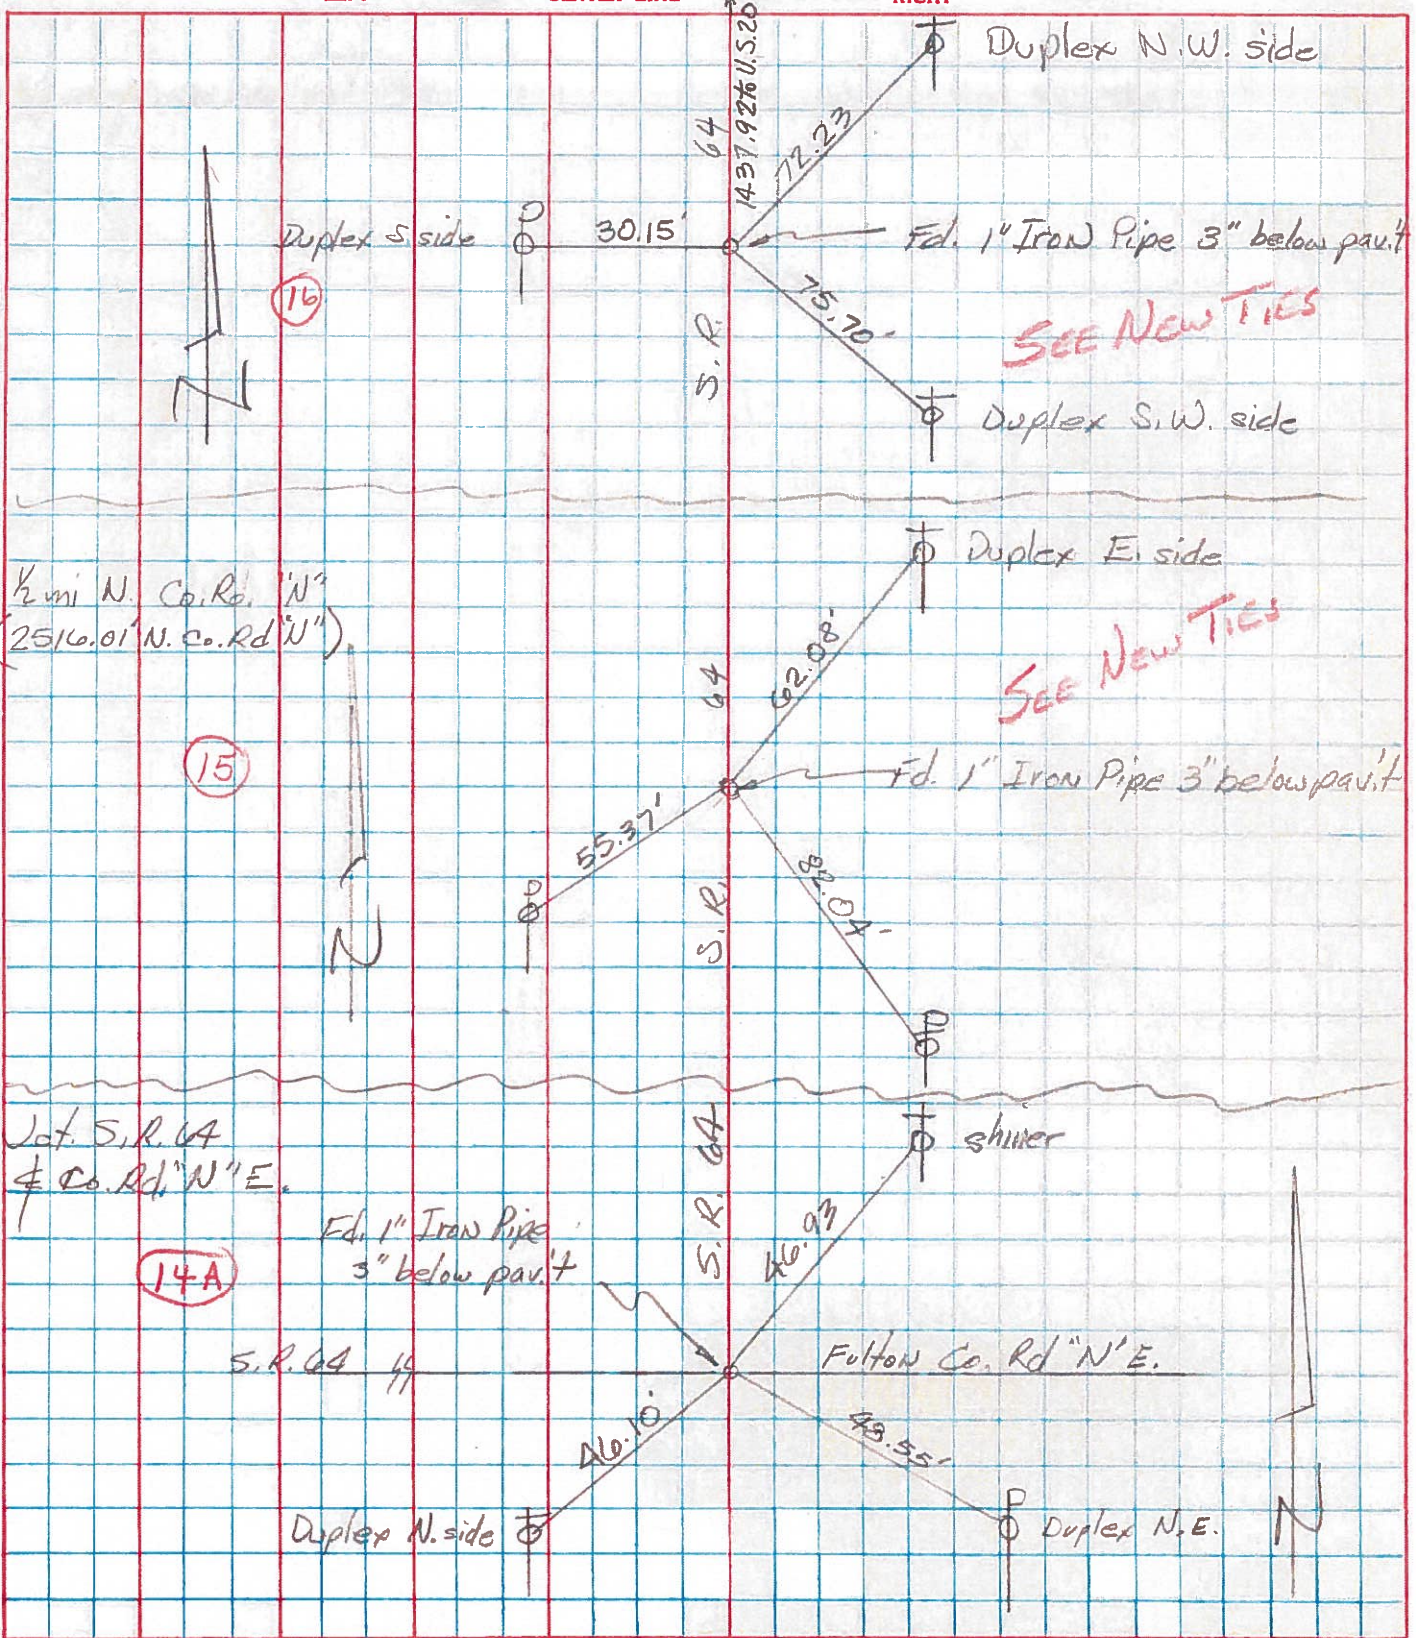 CENTER LINE
RIGHT
1437.92 to U.S. 20
Duplex N.W. side
72.23
S.R. 64
Duplex S. side
30.15'
Fd. 1" Iron Pipe 3" below pav.'t
16
75.70'
SEE NEW TIES
N
Duplex S.W. side
Duplex E. side
1/2 mi N. Co. Rd. "N"
(2516.01' N. Co. Rd "N")
62.08'
SEE NEW TIES
S.R. 64
15
Fd. 1" Iron Pipe 3" below pav.'t
55.37'
82.04'
N
Jct. S.R. 64
& Co. Rd. "N" E.
S.R. 64
shiner
Fd. 1" Iron Pipe
3" below pav.'t
46.93
14A
S.R. 64
Fulton Co. Rd "N" E.
46.10'
48.55'
Duplex N. side
Duplex N.E.
N